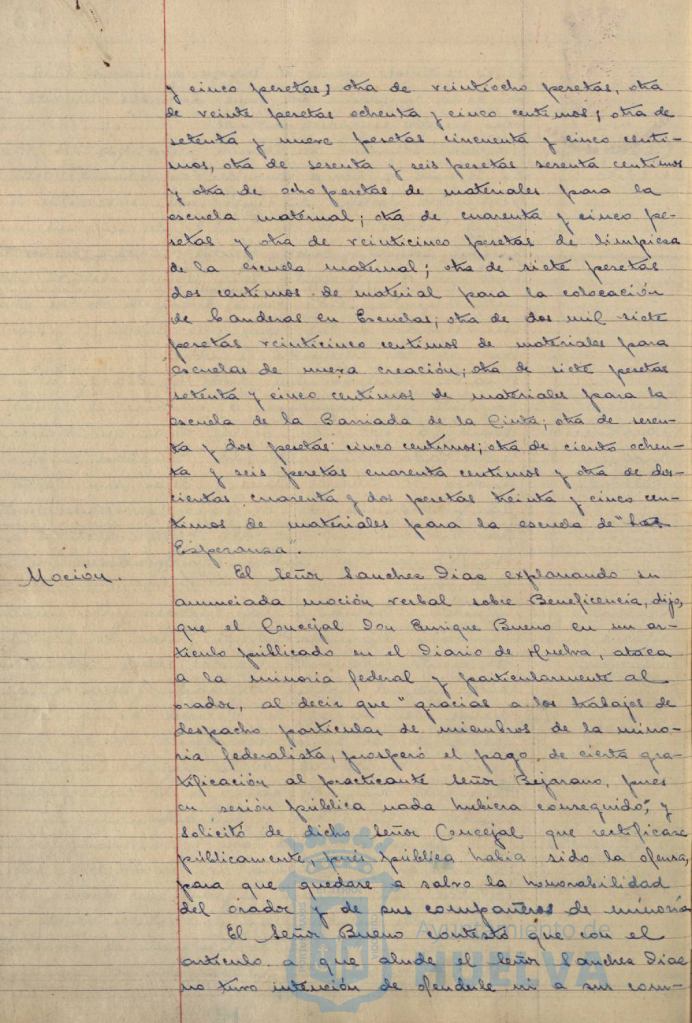 y cinco pesetas; otra de veintiocho pesetas, otra
de veinte pesetas ochenta y cinco centimos; otra de
setenta y nueve pesetas cincuenta y cinco centi-
mos, otra de sesenta y seis pesetas sesenta centimos
y otra de ocho pesetas de materiales para la
escuela maternal; otra de cuarenta y cinco pe-
setas y otra de veinticinco pesetas de limpiesa
de la escuela maternal; otra de siete pesetas
dos centimos de material para la colocación
de banderas en Escuelas; otra de dos mil siete
pesetas veinticinco centimos de materiales para
escuelas de nueva creación; otra de siete pesetas
setenta y cinco centimos de materiales para la
escuela de la Barriada de la Cinta; otra de sesen-
ta y dos pesetas cinco centimos; otra de ciento ochen-
ta y seis pesetas cuarenta centimos y otra de dos-
cientas cuarenta y dos pesetas treinta y cinco cen-
timos de materiales para la escuela de "La
Esperanza".
Moción. El Señor Sanchez Diaz explanando su
anunciada moción verbal sobre Beneficencia, dijo,
que el Concejal Don Enrique Bueno en un ar-
tículo públicado en el Diario de Huelva, ataca
a la minoria federal y particularmente al
orador, al decir que "gracias a los trabajos de
despacho particular de miembros de la mino-
ria federalista, prosperó el pago de cierta gra-
tificación al practicante Señor Bejarano, pues
en sesión pública nada hubiera conseguido", y
solicitó de dicho Señor Concejal que rectificase
públicamente, pués pública habia sido la ofensa,
para que quedase a salvo la honorabilidad
del orador y de sus compañeros de minoria
El Señor Bueno contestó que con el
artículo a que alude el Señor Sanchez Diaz
no tuvo intención de ofenderle ni a sus com-
Ayuntamiento de
HUELVA